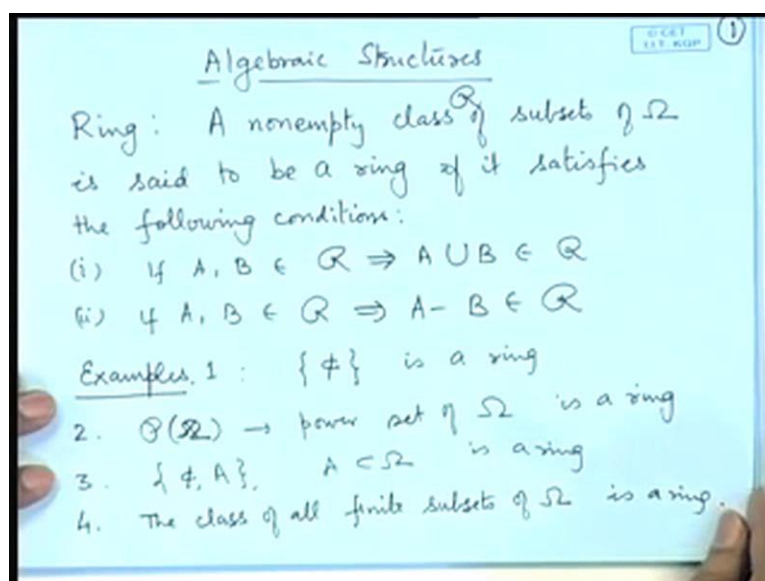 © CET
I.I.T. KGP
1
Algebraic Structures
Ring: A nonempty class ℛ of subsets of Ω
is said to be a ring if it satisfies
the following conditions:
(i) If A, B ∈ ℛ ⇒ A ∪ B ∈ ℛ
(ii) If A, B ∈ ℛ ⇒ A - B ∈ ℛ
Examples. 1 : {ϕ} is a ring
2. P(Ω) → power set of Ω is a ring
3. {ϕ, A}, A ⊂ Ω is a ring
4. The class of all finite subsets of Ω is a ring.